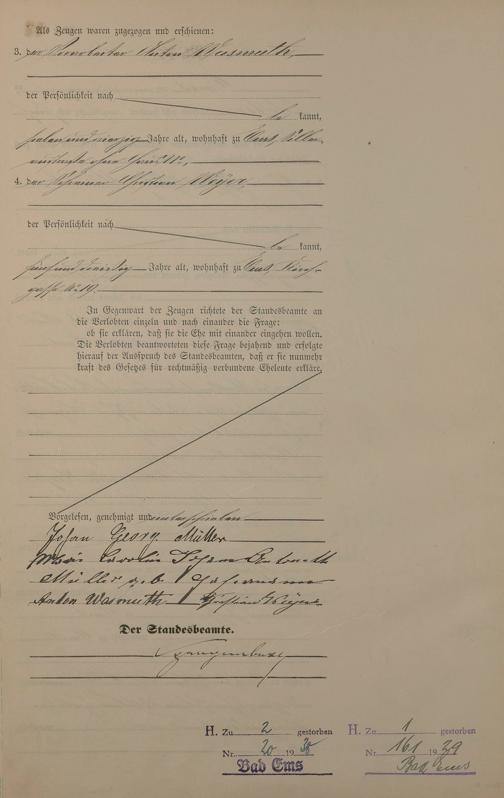 Als Zeugen waren zugezogen und erschienen:
3. der Anton Wasmuth,
der Persönlichkeit nach
be kannt,
sieben und vierzig Jahre alt, wohnhaft zu Ems,
4. der Christian Weyer,
der Persönlichkeit nach
be kannt,
fünf und dreißig Jahre alt, wohnhaft zu Ems,
No 19.
In Gegenwart der Zeugen richtete der Standesbeamte an
die Verlobten einzeln und nach einander die Frage:
ob sie erklären, daß sie die Ehe mit einander eingehen wollen.
Die Verlobten beantworteten diese Frage bejahend und erfolgte
hierauf der Ausspruch des Standesbeamten, daß er sie nunmehr
kraft des Gesetzes für rechtmäßig verbundene Eheleute erkläre.
Vorgelesen, genehmigt und unterschrieben
Johan Georg Müller
Müller geb
Anton Wasmuth Christian Weyer
Der Standesbeamte.
H. Zu 2 gestorben
Nr. 20 19 30
Bad Ems
H. Zu 1 gestorben
Nr. 161 19 29
Bad Ems